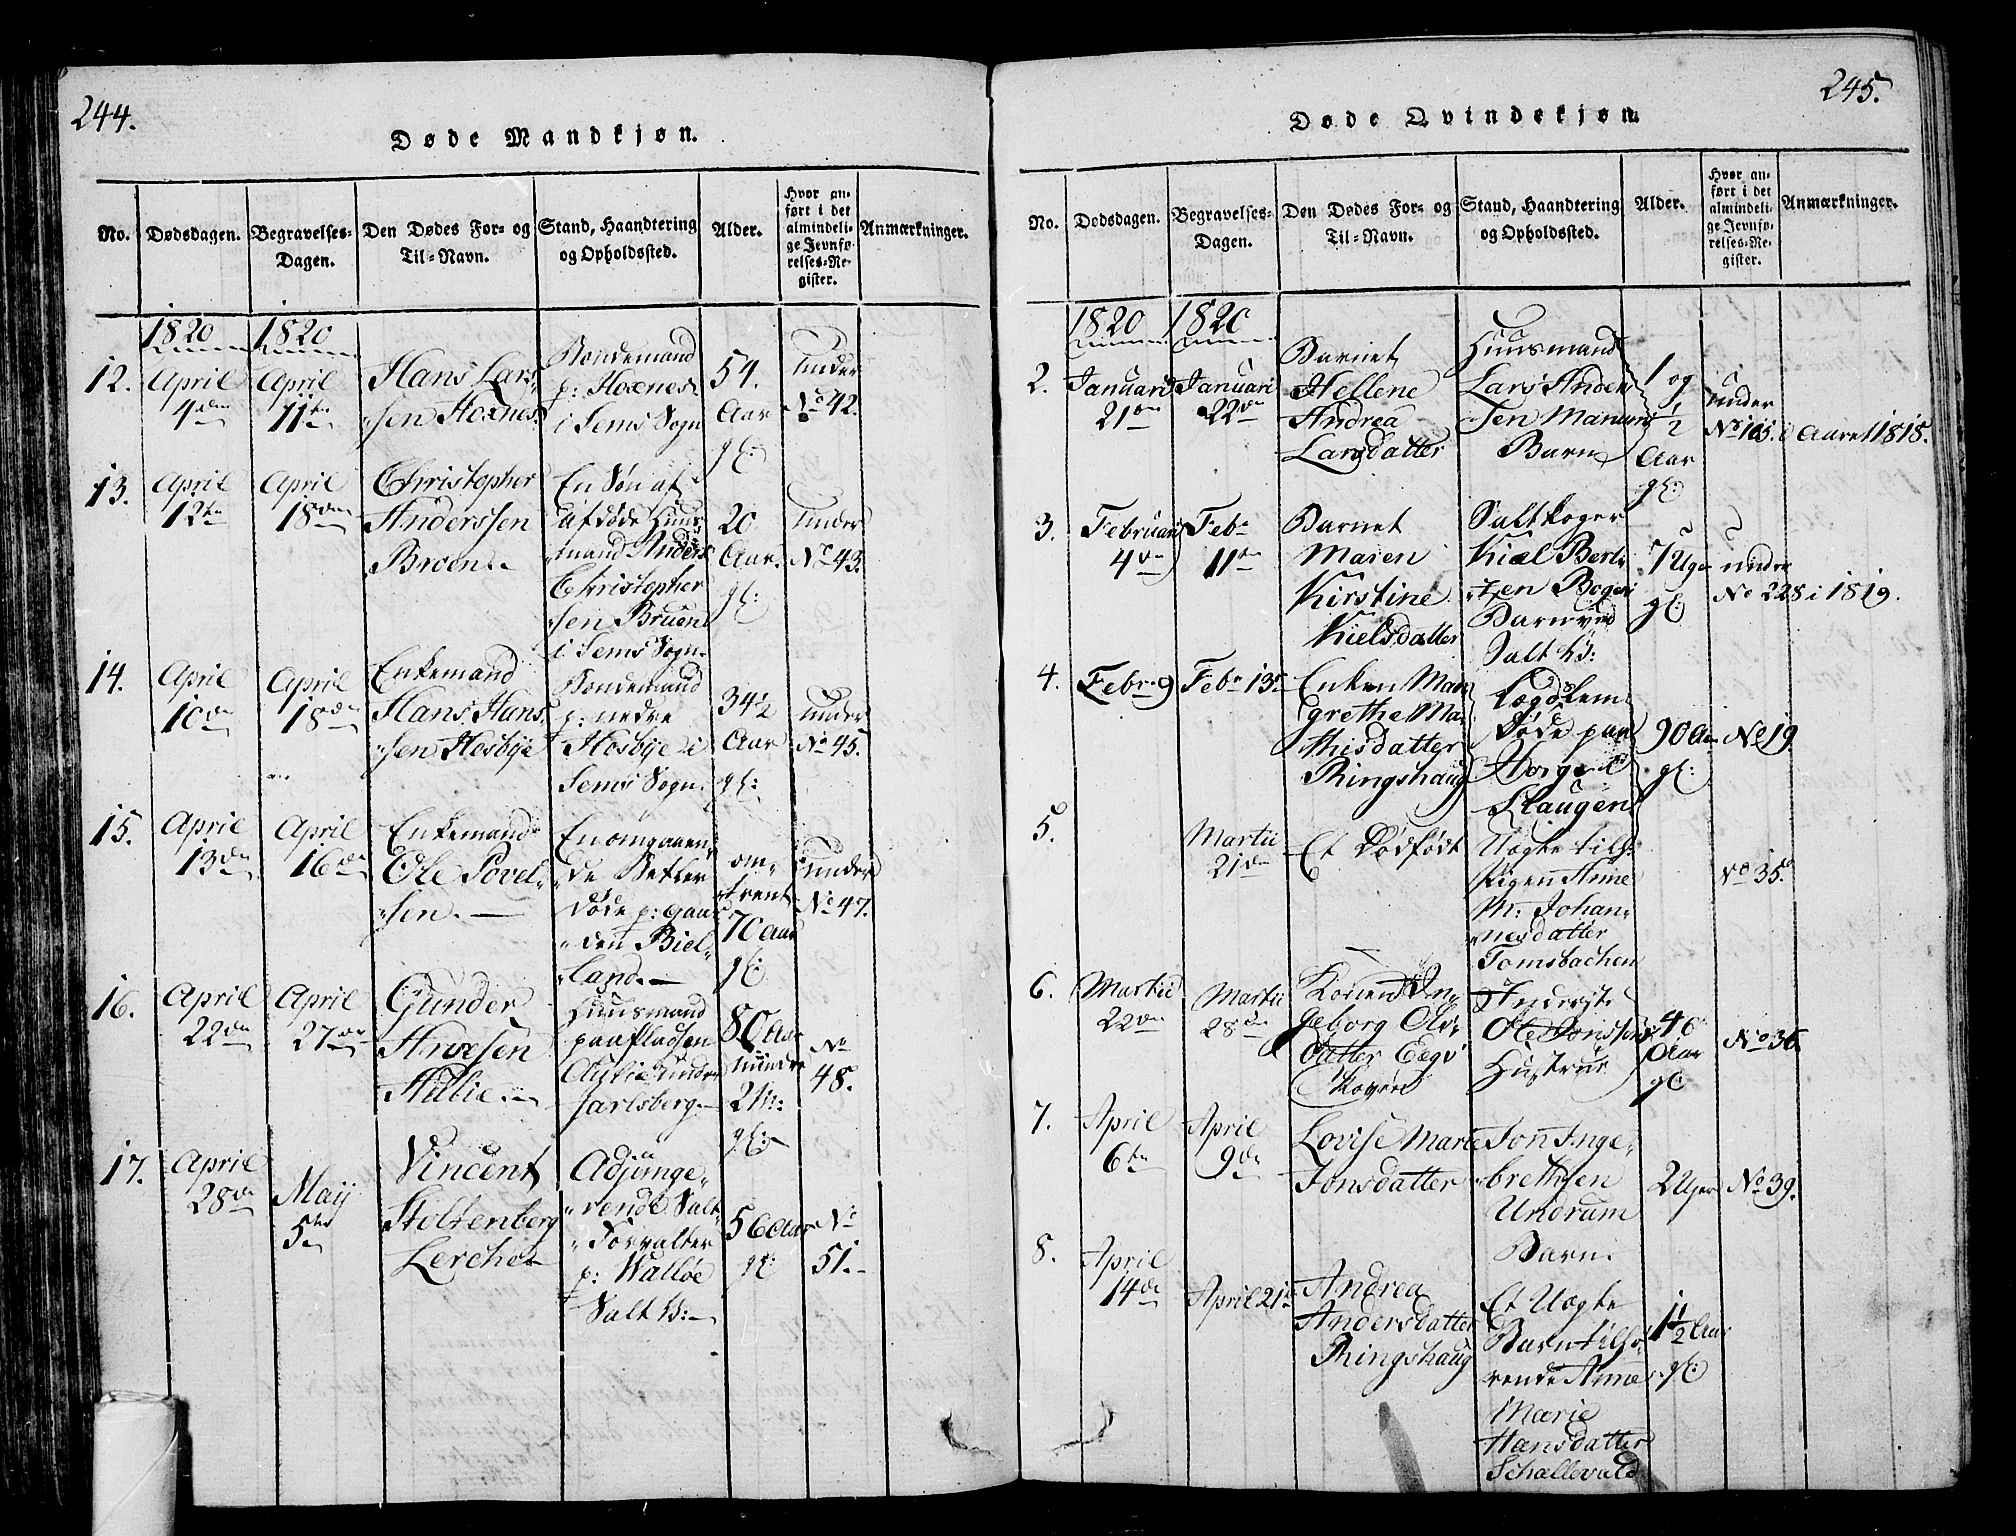 244.
Døde Mandkjøn.
No. Dødsdagen. Begravelses-Dagen. Den Dødes For- og Til-Navn. Stand, Haandtering og Opholdssted. Alder. Hvor anført i det almindelige Jevnførelses-Register. Anmærkninger.
1820 1820
12. April 4de April 11te
Hans Lars-
sen Hoxnes
Bondemand
p: Hoxnes
i Sems Sogn
54.
Aar
gl:
under
No 42.
13. April 12te April 18de
Christopher
Anderssen
Broen
En Søn af
afdøde Huus-
mand Anders
Christopher
sen Bruen
i Sems Sogn.
20
Aar
gl:
under
No 43.
14. April 10de April 18de
Enkemand
Hans Hans-
sen Hosbye
Bondemand
p: nedre
Hosbye i
Sems Sogn.
34½
Aar
gl:
under
No 45.
15. April 13de April 16de
Enkemand
Ole Povel-
sen.
En omgaaen-
de Betler
døde p: Gaar-
den Biel-
land.
om-
trent
70 Aar
gl:
under
No 47.
16. April 22de April 27de
Gunder
Huusmand
paa Pladsen
under
Jarlsberg
80 Aar
mindre
2 M:
gl:
No
48.
17. April 28de Maij 5te
Vincent
Stoltenberg
Lerche
Adjunge-
rende Salt-
Forvalter
p: Walløe
Salt V:
56 Aar
gl:
No
51.
245.
Døde Qvindekjøn.
No. Dødsdagen. Begravelses-Dagen. Den Dødes For- og Til-Navn. Stand, Haandtering og Opholdssted. Alder. Hvor anført i det almindelige Jevnførelses-Register. Anmærkninger.
1820 1820
2. Januari 21de Januari 22de
Barnet
Hellene
Andrea
Larsdatter
Huusmand
Lars Ander
sen
Barn
1 og
½
Aar
gl:
under
No 105. i Aaret 1818.
3. Februari 4de Feb. 11te
Barnet
Maren
Kirstine
Kielsdatter
Saltkoger
Kiel Bert-
Barn ved
Salt V:
7 Uger
gl:
under
No 228 i 1819.
4. Febr. 9 Feb. 13
Enken Mar
grethe Ma-
thisdatter
Ringshaug
Lægdslem
døde paa
90 Aar
gl:
No 19
5. Martii 21de
Et Dødfødt
Uægte tilh:
Pigen Anne
M: Johan-
nesdatter
Tomsbachen
No 35.
6. Martii 22de Martii 28de
Konen In-
geborg Ols-
datter
Inderste
Ole
Hustrue
46
Aar
gl:
No 36.
7. April 6te April 9de
Lovise Marie
Jonsdatter
Jon Inge-
brethsen
Undrum
Barn
2 Uger
No 39.
8. April 14de April 21de
Andrea
Andersdatter
Ringshaug
Et Uægte
Barn tilhø-
rende Anne
Marie
Hansdatter
Schallevald
1½ Aar
gl: